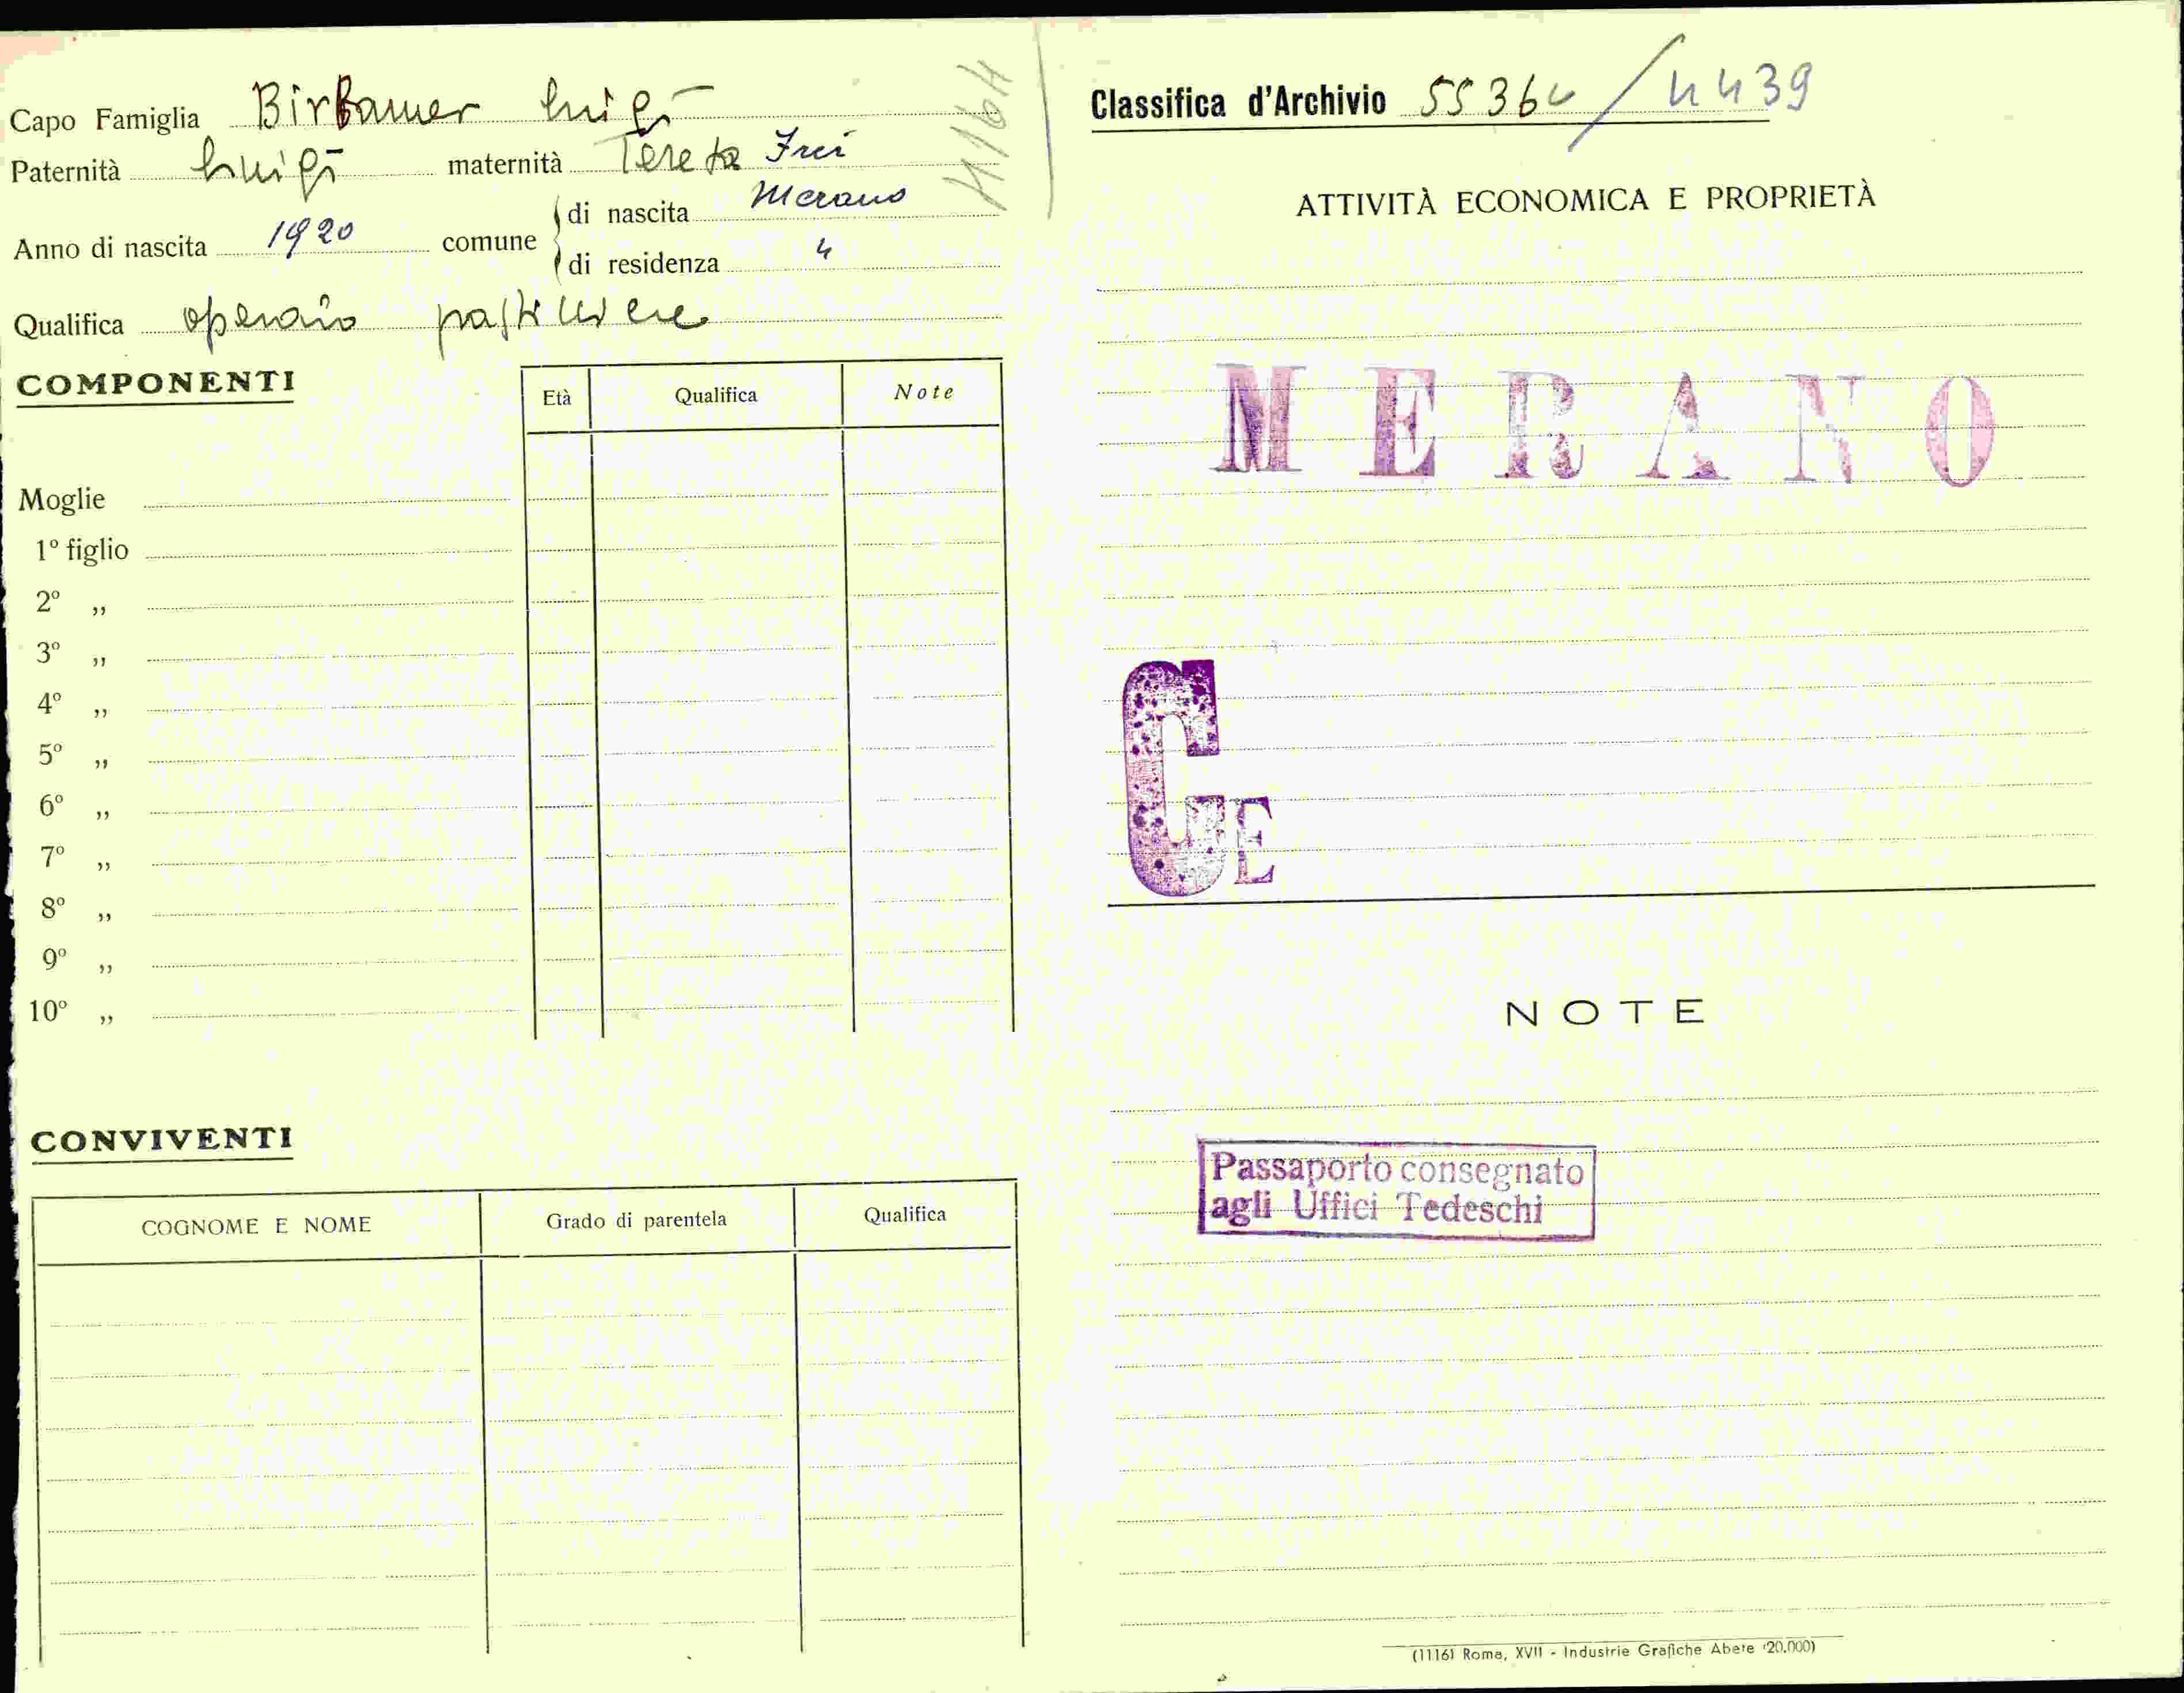 Capo Famiglia Birbamer Luigi
Paternità Luigi maternità Teresa Frei
Anno di nascita 1920 comune di nascita Merano
di residenza "
Qualifica operaio pasticcere
COMPONENTI
Età Qualifica Note
Moglie
1º figlio
2º „
3º „
4º „
5º „
6º „
7º „
8º „
9º „
10º „
CONVIVENTI
COGNOME E NOME Grado di parentela Qualifica
Classifica d'Archivio 55364 / 4439
ATTIVITÀ ECONOMICA E PROPRIETÀ
MERANO
G E
NOTE
Passaporto consegnato
agli Uffici Tedeschi
(1116) Roma, XVII - Industrie Grafiche Abete (20.000)